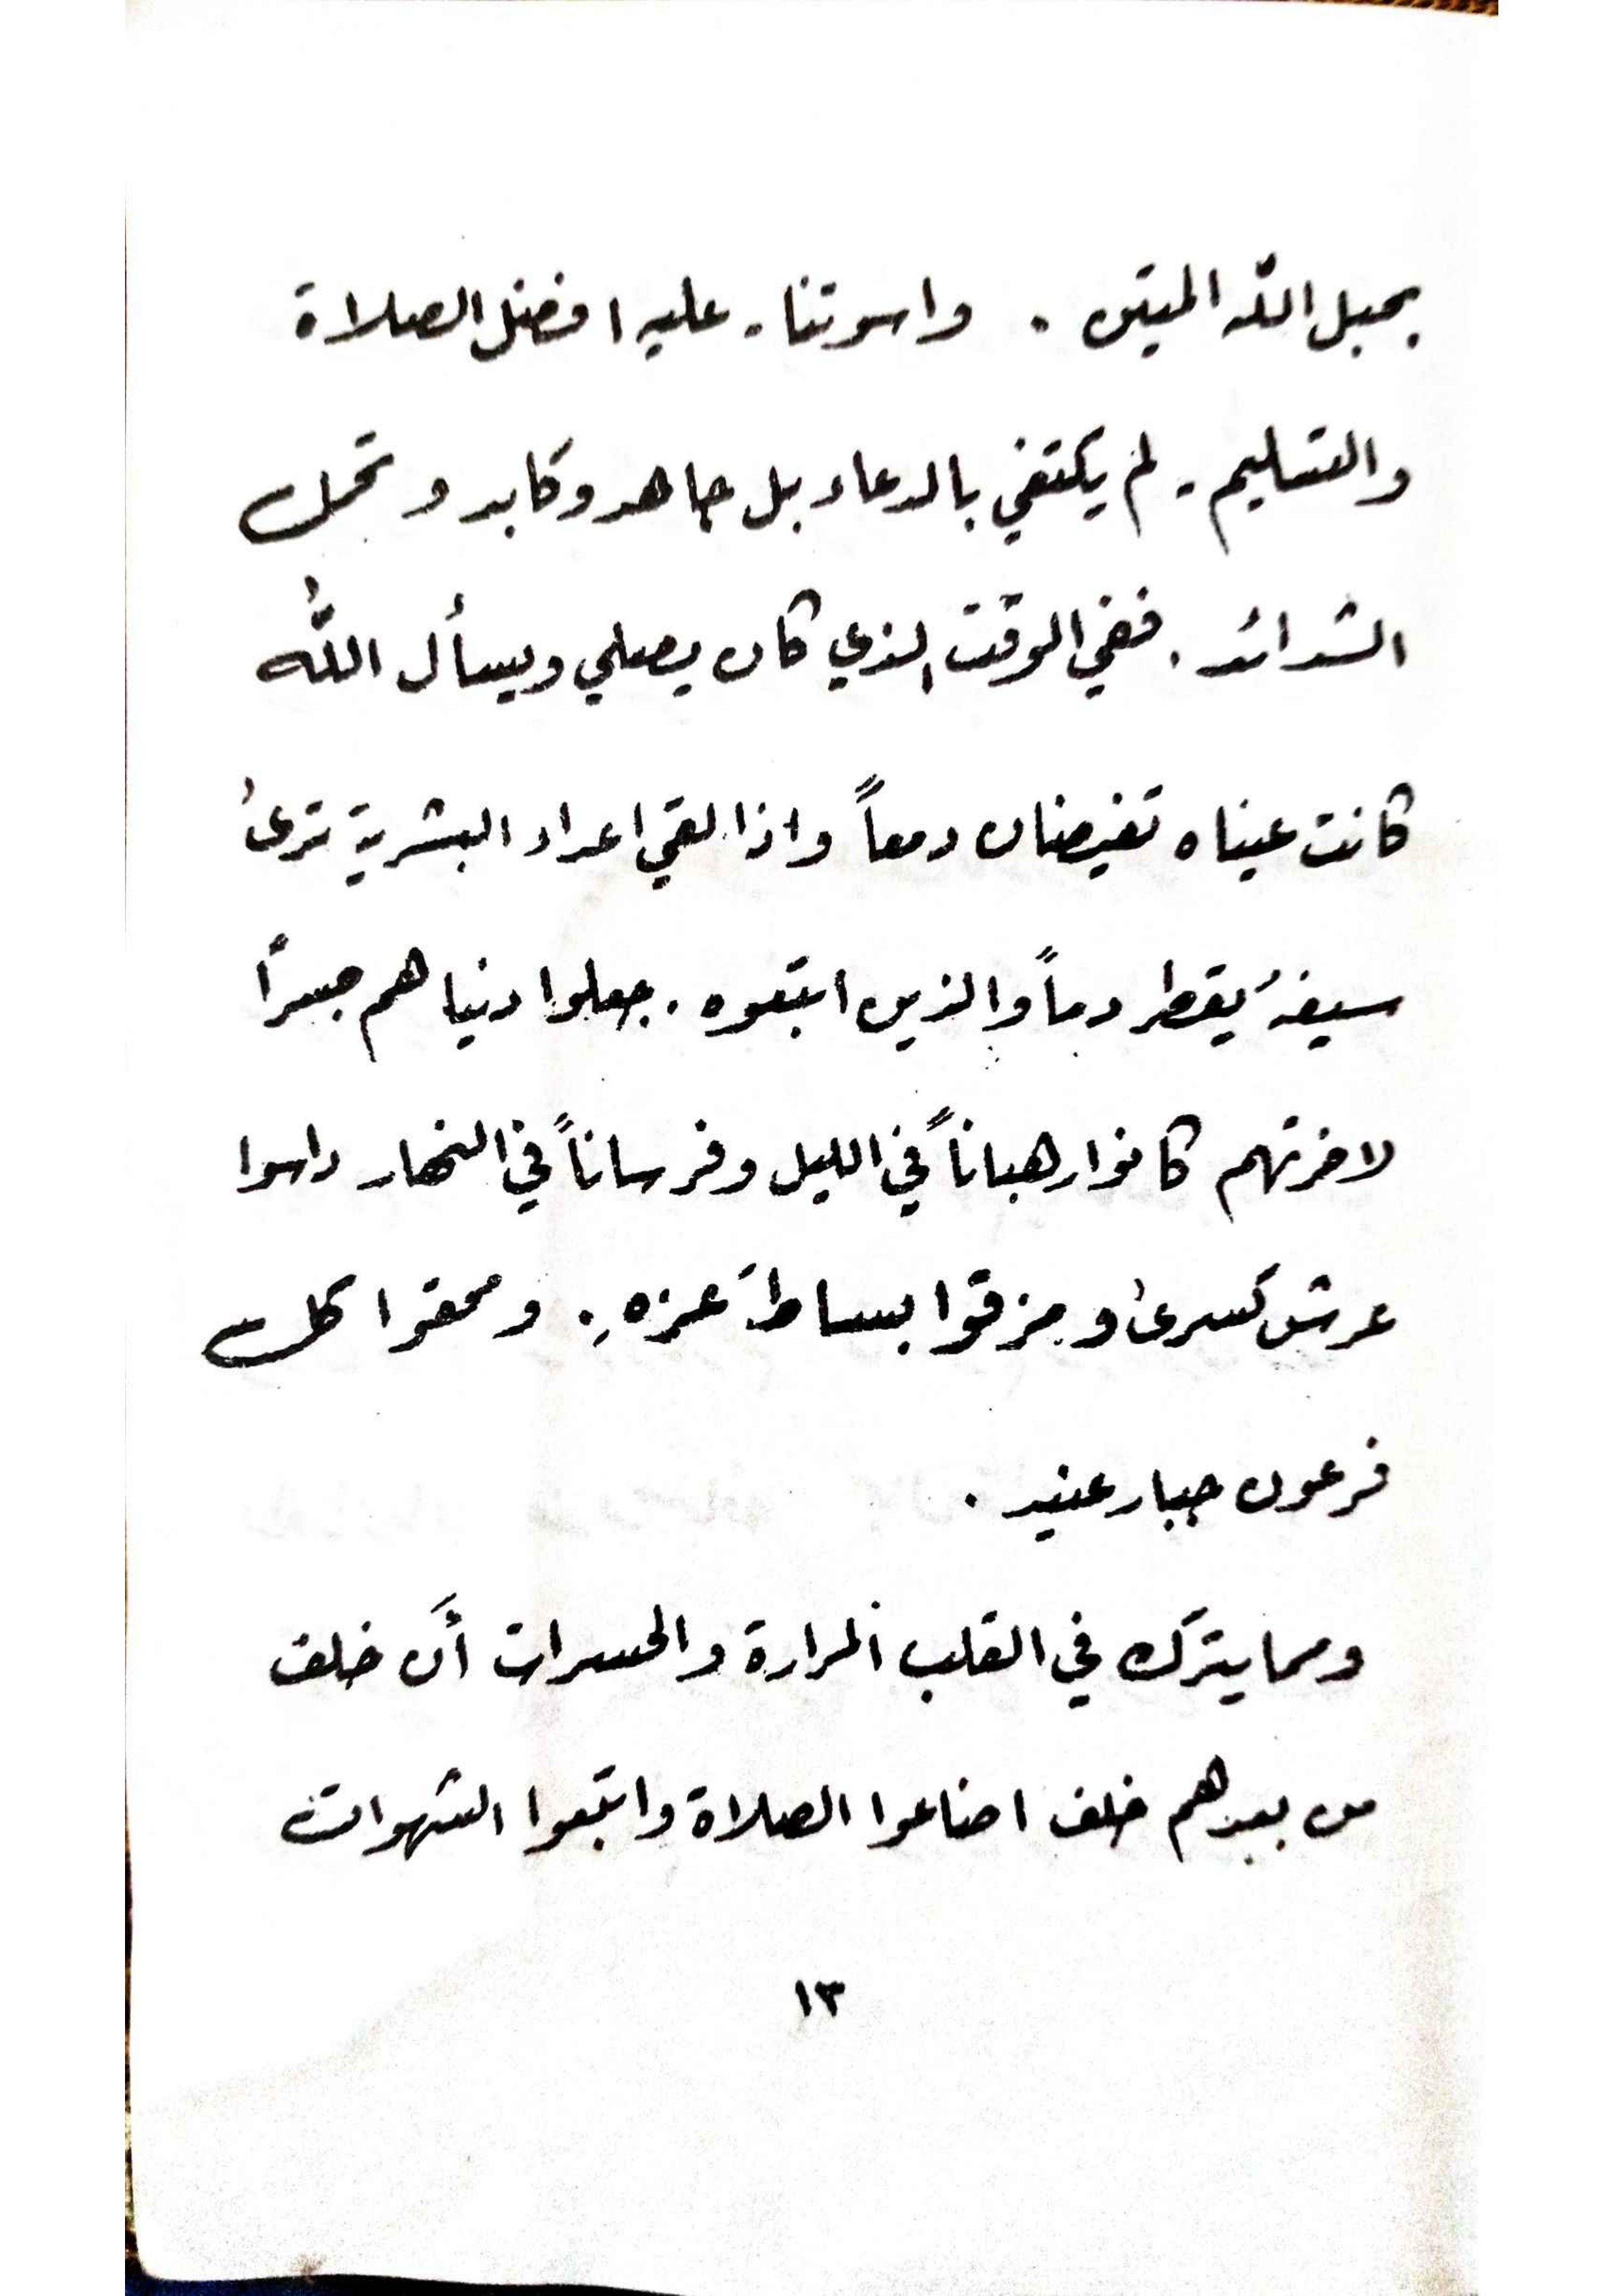 بحبل الله المتين . واسوتنا - عليه افضل الصلاة
والتسليم - لم يكتفي بالدعاء بل جاهد وكابد وتحمل
الشدائد . ففي الوقت الذي كان يصلي ويسأل اللهُ
كانت عيناه تفيضان دمعاً واذا لقي اعداء البشرية ترىٰ
سيفهُ يقطر دماً والذين اتبعوه . جعلوا دنياهم جسراً
لاخرتهم كانوا رهباناً في الليل وفرساناً في النهار داسوا
عرش كسرىٰ ومزقوا بساطَ عزهِ . ومحقوا كل
فرعون جبار عنيد .
ومما يترك في القلب المرارة والحسرات أَن خلف
من بعدهم خلف اضاعوا الصلاة واتبعوا الشهوات
١٣